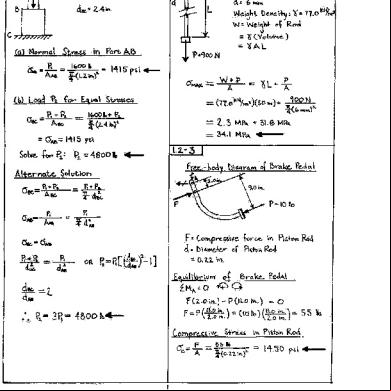 B
d_BC = 2.4 in
C
(a) Normal Stress in Part AB
σ_AB = P₁/A_AB = 1600 lb / (π/4 (1.2 in)²) = 1415 psi ←
(b) Load P₂ for Equal Stresses
σ_BC = (P₁+P₂)/A_BC = (1600 lb + P₂) / (π/4 (2.4 in)²)
= σ_AB = 1415 psi
Solve for P₂: P₂ = 4800 lb ←
Alternate Solution
σ_BC = (P₁+P₂)/A_BC = (P₁+P₂) / (π/4 d²_BC)
σ_AB = P₁/A_AB = P₁ / (π/4 d²_AB)
σ_BC = σ_AB
(P₁+P₂)/d²_BC = P₁/d²_AB OR P₂ = P₁[(d_BC/d_AB)² - 1]
d_BC/d_AB = 2
∴ P₂ = 3P₁ = 4800 lb ←
d = 6 mm
Weight Density: γ = 77.0 kN/m³
W = Weight of Rod
= γ (Volume)
= γAL
d
L
P = 900 N
σ_MAX = (W+P)/A = γL + P/A
= (77.0 kN/m³)(30 m) + 900 N / (π/4 (6 mm)²)
= 2.3 MPa + 31.8 MPa
= 34.1 MPa ←
1.2-3
Free-body Diagram of Brake Pedal
2.0 in.
9.0 in.
F
P = 10 lb
F = Compressive force in Piston Rod
d = Diameter of Piston Rod
= 0.22 in.
Equilibrium of Brake Pedal
ΣM_A = 0
F(2.0 in.) - P(11.0 in.) = 0
F = P(11.0 in./2.0 in.) = (10 lb)(11.0 in./2.0 in.) = 55 lb
Compressive Stress in Piston Rod
σ_C = F/A = 55 lb / (π/4 (0.22 in.)²) = 1450 psi ←